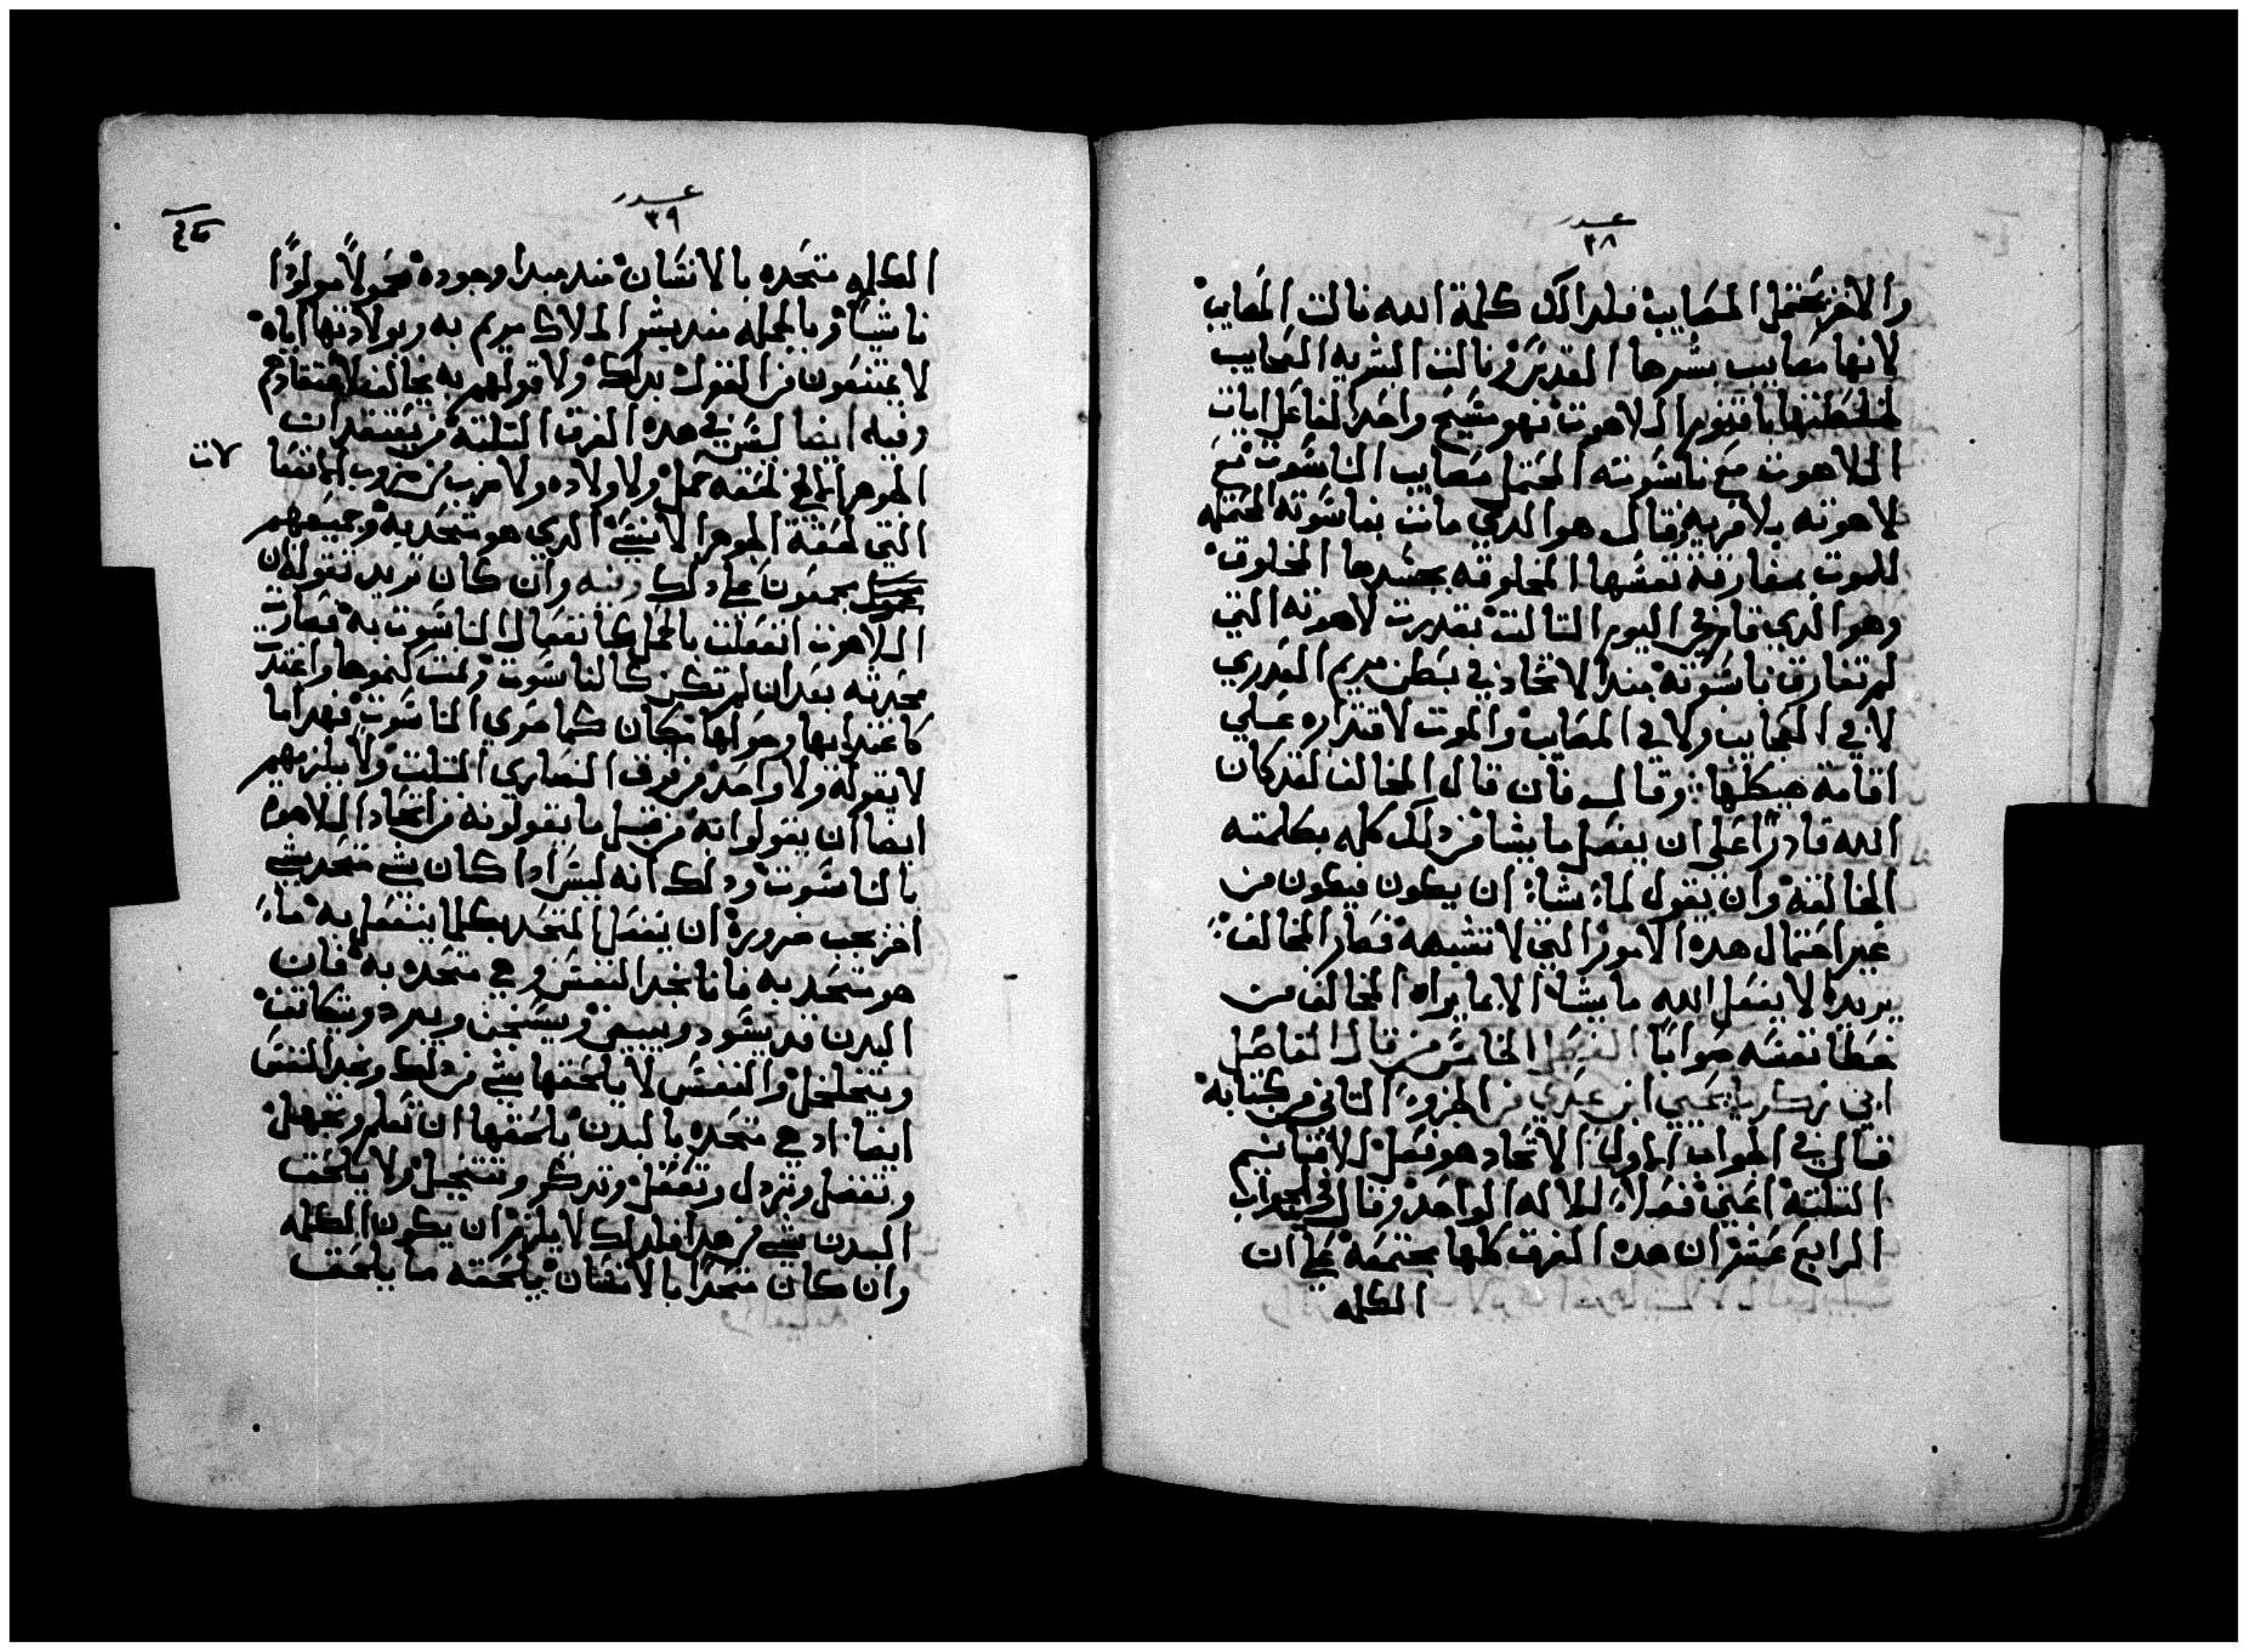 عدد
٣٨
والاخر يحتمل المصايب فلدالك كلمة الله نالت المصايب
لانها مصايب بشرها المقدس ونالت البشريه العجايب
لخلطتها باقنوم اللاهوت فهو مسيح واحد الفاعل ايات
اللاهوت مع ناسوته المحتمل مصايب الناسوت مع
لاهوته بلا فريه وقال هو الدي مات بناسوته المحتمله
للموت بمفارقة نفسها المخلوقه بجسدها المخلوق
وهو الدي قام في اليوم التالت بقدرت لاهوته التي
لم تفارق ناسوته مند الاتحاد في بطن مريم العدري
لا في العجايب ولا في المصايب والموت لاقتداره علي
اقامة هيكلها وقال فان قال المخالف لقد كان
الله قادرًا علي ان يفعل ما يشا من دلك كله بكلمته
الخالقه وان يقول لما يشا ان يكون فيكون من
غير احتمال هده الامور التي لا تشبهه فصار المخالف
يريد لا يفعل الله ما يشا الا بما يراه المخالف من
خطا نفسه صوابا الفصل الخامس من قال الفاضل
ابي زكريا يحيي ابن عدي من الجزو التاني من كتابه
قال في الجواب الاول الاتحاد هو فعل الاقانيم
التلتة اعني فعلا للاله الواحد وقال في الجواب
الرابع عشر ان هده الفرق كلها مجتمعه علي ان
الكلمه
عدد
٣٩
الكلمه متحده بالانسان مند مبدا وجوده محمولاً مولودًا
ناشيًا وبالجمله مند بشر الملاك مريم به وبولادتها اياه
لا يمتنعون من القول بدلك ولا قولهم به يخالف لاعتقادهم
وفيه ايضا ليس في هده الفرق التلته من يعتقد ان
الجوهر لحقه حمل ولا ولاده ولا ضرب من ضروب
التي لحقة الجوهر الانسي الدي هو متحد به وجميعهم
يجمعون علي دلك وفيه وان كان تريد تقوله ان
اللاهوت انفعلت بالحمل كانفعال الناسوت به فصارت
محدثه بعد ان لم تكن كالناسوت ونمت كنموها واغتدت
كاغتدايها وحواها مكان كما حوي الناسوت فهدا ما
لا يقوله ولا واحد من فرق النصاري التلت ولا يلزمهم
ايضا ان يقولوا به من قبل ما يقولونه من اتحاد اللاهوت
بالناسوت ودلك انه ليس ادا كان شي متحد بشي
اخر يجب ضرورة ان يفعل المتحد بكلما ينفعل به ما
هو متحد به فانا نجد النفس وهي متحده به فان
البدن قد يسود ويبيض ويسخن ويبرد ويتكاتف
ويتخلخل والنفس لا يلحقها شي من دلك ونجد النفس
ايضا اد هي متحده بالبدن يلحقها ان تعلم وتجهل
وتفضل وتردل وتعقل وتدكر وتتخيل ولا يلحق
البدن شي من هدا فلدلك لا يلزم ان يكون الكلمه
وان كان متحدًا بالانسان يلحقه ما يلحق